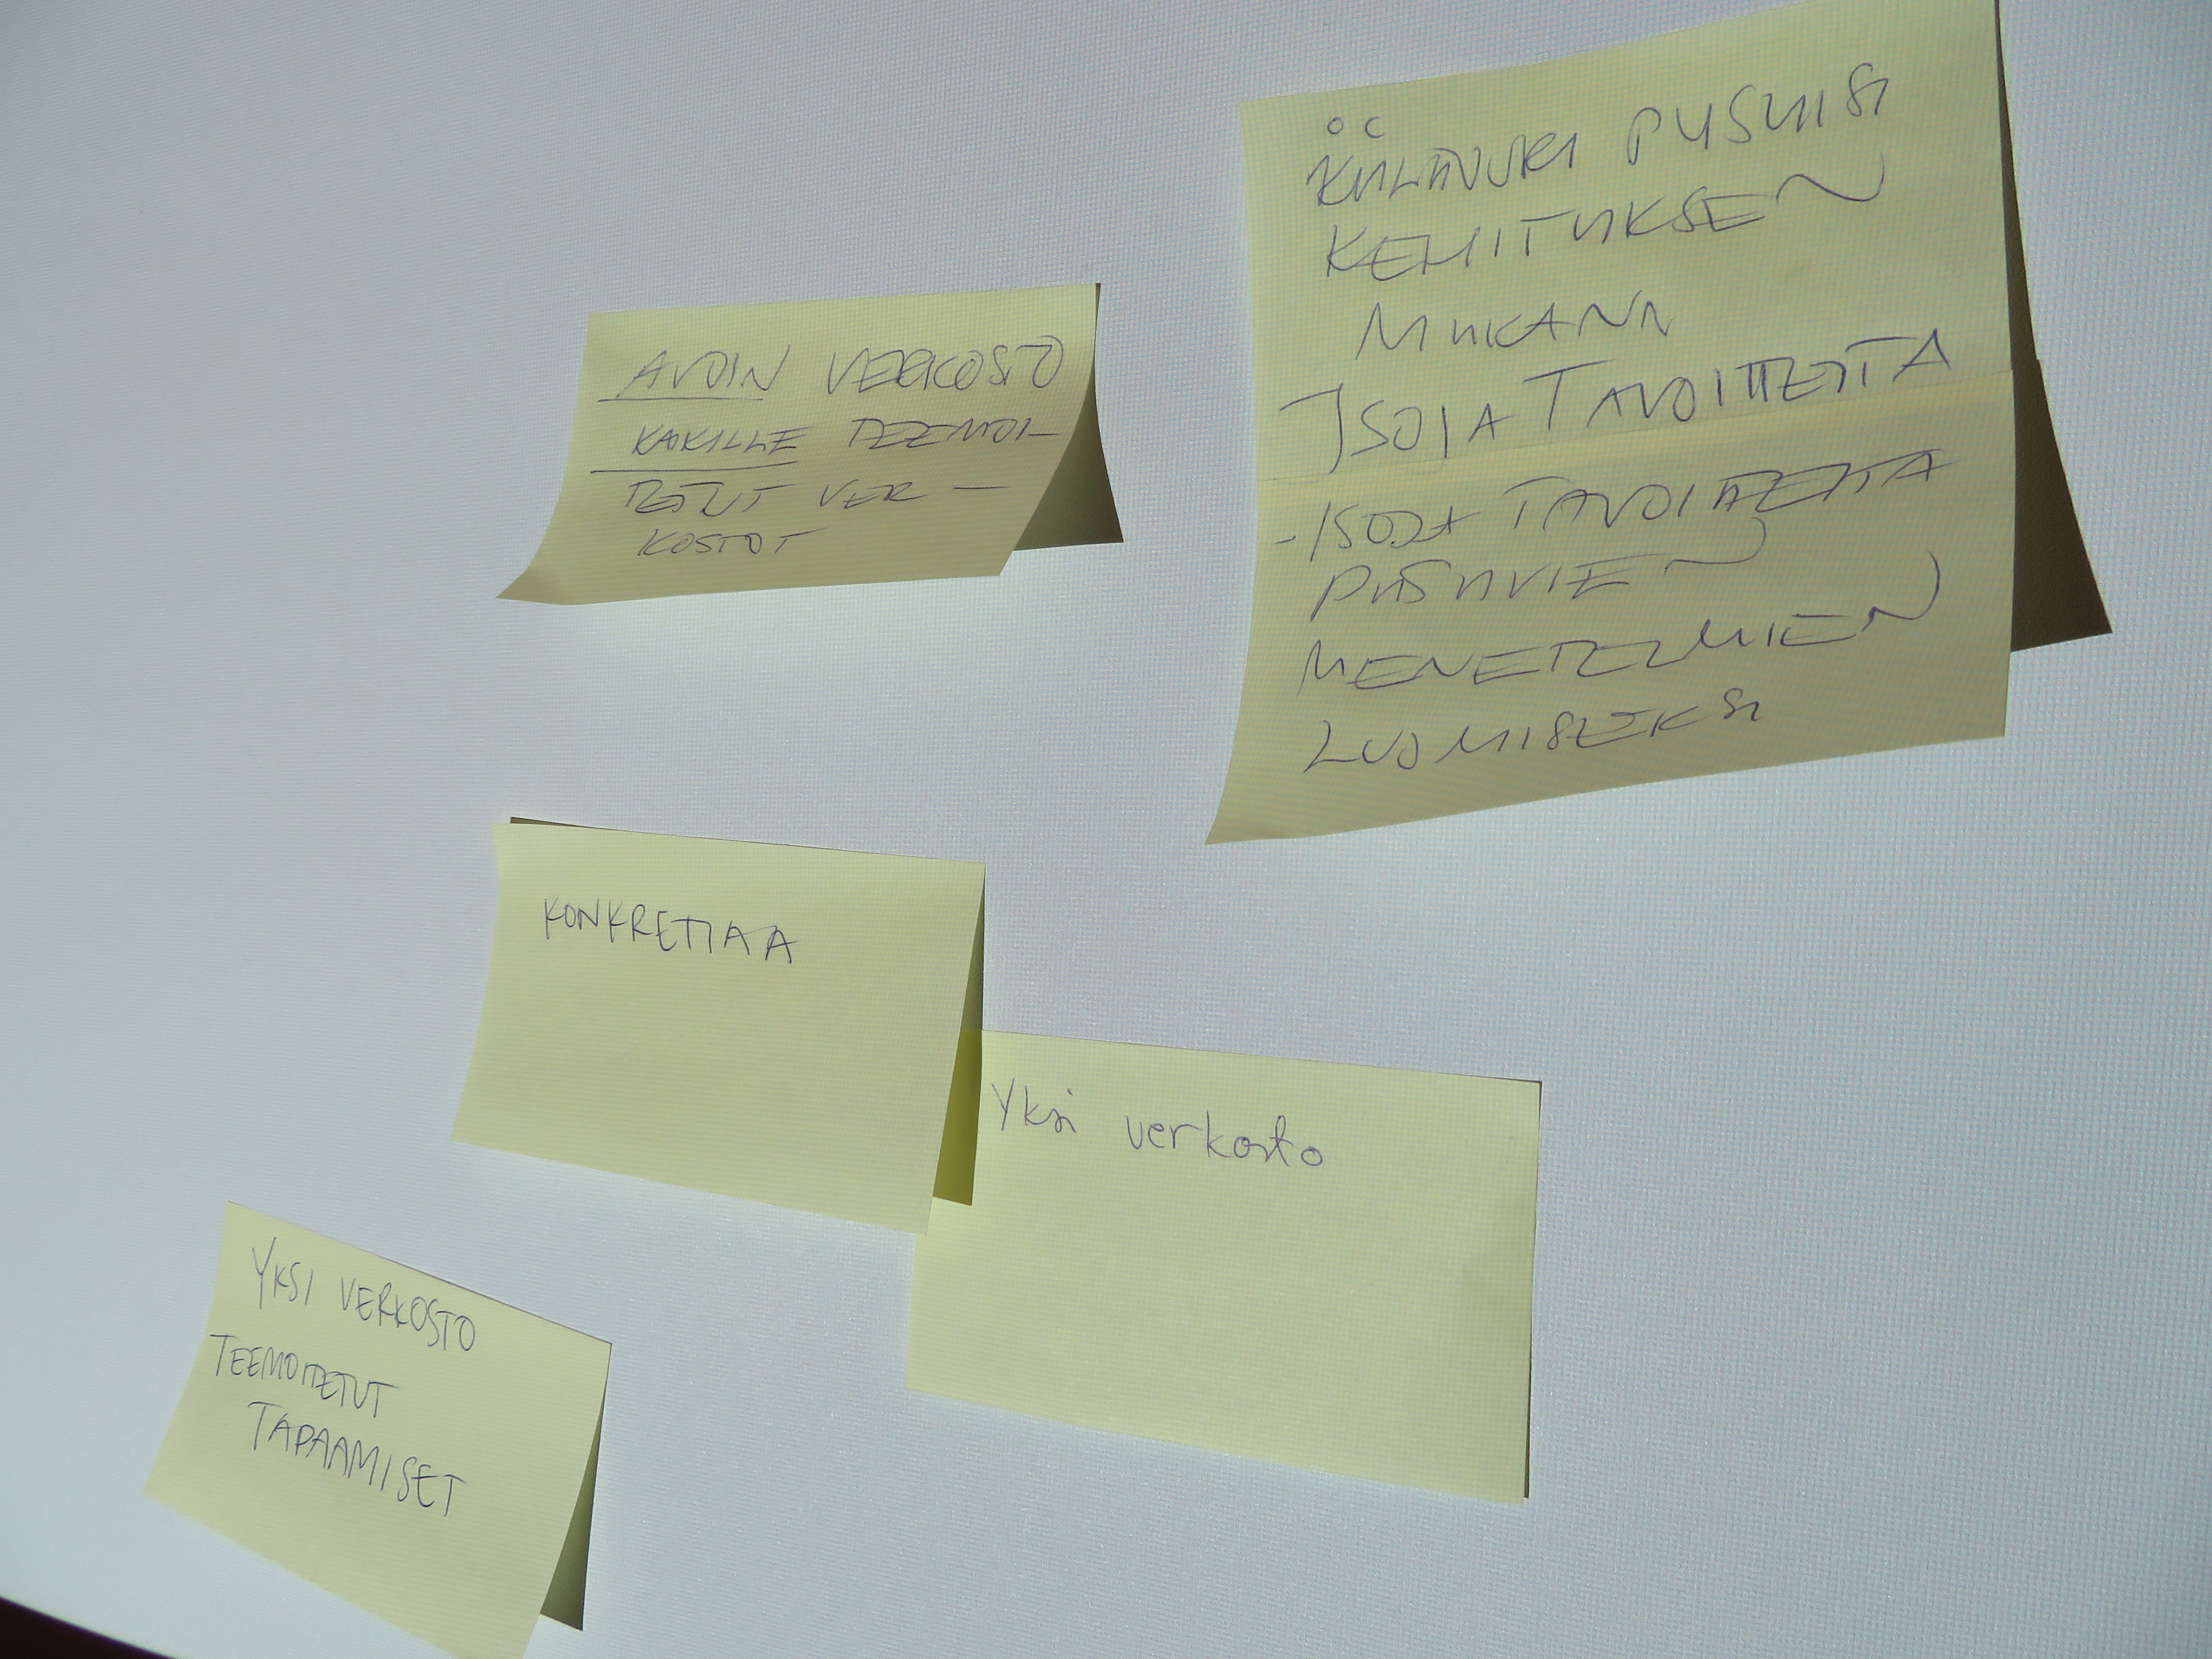 AVOIN VERKOSTO
KAIKILLE TEEMOI-
TETUT VER-
KOSTOT
PYSYISI
KEHITYKSEN
MUKANA
ISOJA TAVOITTEITA
-ISOJA TAVOITTEITA
PYSYVIEN
MENETELMIEN
LUOMISEKSI
KONKRETIAA
Yksi verkosto
YKSI VERKOSTO
TEEMOITETUT
TAPAAMISET